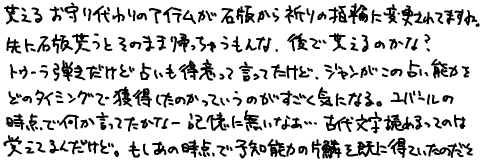 貰える お守り代わりのアイテムが 石版から祈りの指輪に変更されてますね。
先に石版貰うとそのまま帰っちゃうもんな、後で貰えるのかな?
トゥーラ弾きだけど占いも得意って言ってたけど、ジャンがこの占い能力を
どのタイミングで獲得したのかっていうのがすごく気になる。ユバールの
時点で何か言ってたかなー記憶に無いなぁ…古代文字読めるってのは
覚えてるんだけど。もしあの時点で予知能力の片鱗を既に得ていたのだと